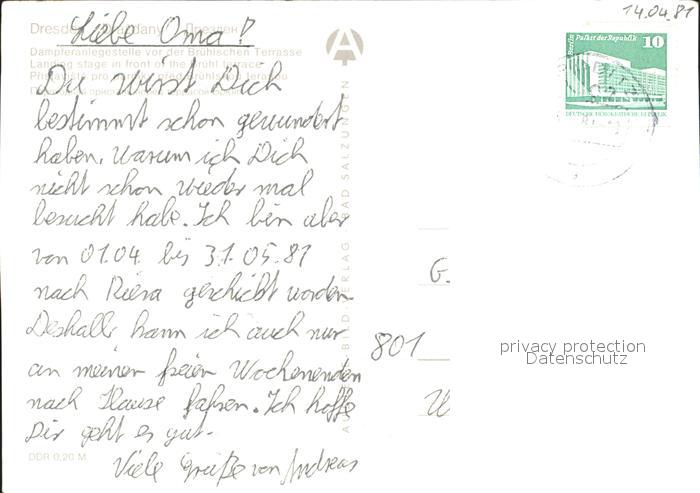 14.04.81
Liebe Oma!
Dresden
Dampferanlegestelle vor der Brühlschen Terrasse
Landing stage in front of the Brühl terrace
Du wirst Dich
bestimmt schon gewundert
haben, warum ich Dich
nicht schon wieder mal
besucht habe. Ich bin aber
von 01.04. bis 31.05.81
nach Riesa geschickt worden
Deshalb kann ich auch nur
an meinen freien Wochenenden
nach Hause fahren. Ich hoffe
Dir geht es gut.
Viele Grüße von Andreas
DDR 0,20 M
BILD VERLAG BAD SALZUNGEN
Berlin Palast der Republik
10
DEUTSCHE DEMOKRATISCHE REPUBLIK
G.
801
W
privacy protection
Datenschutz